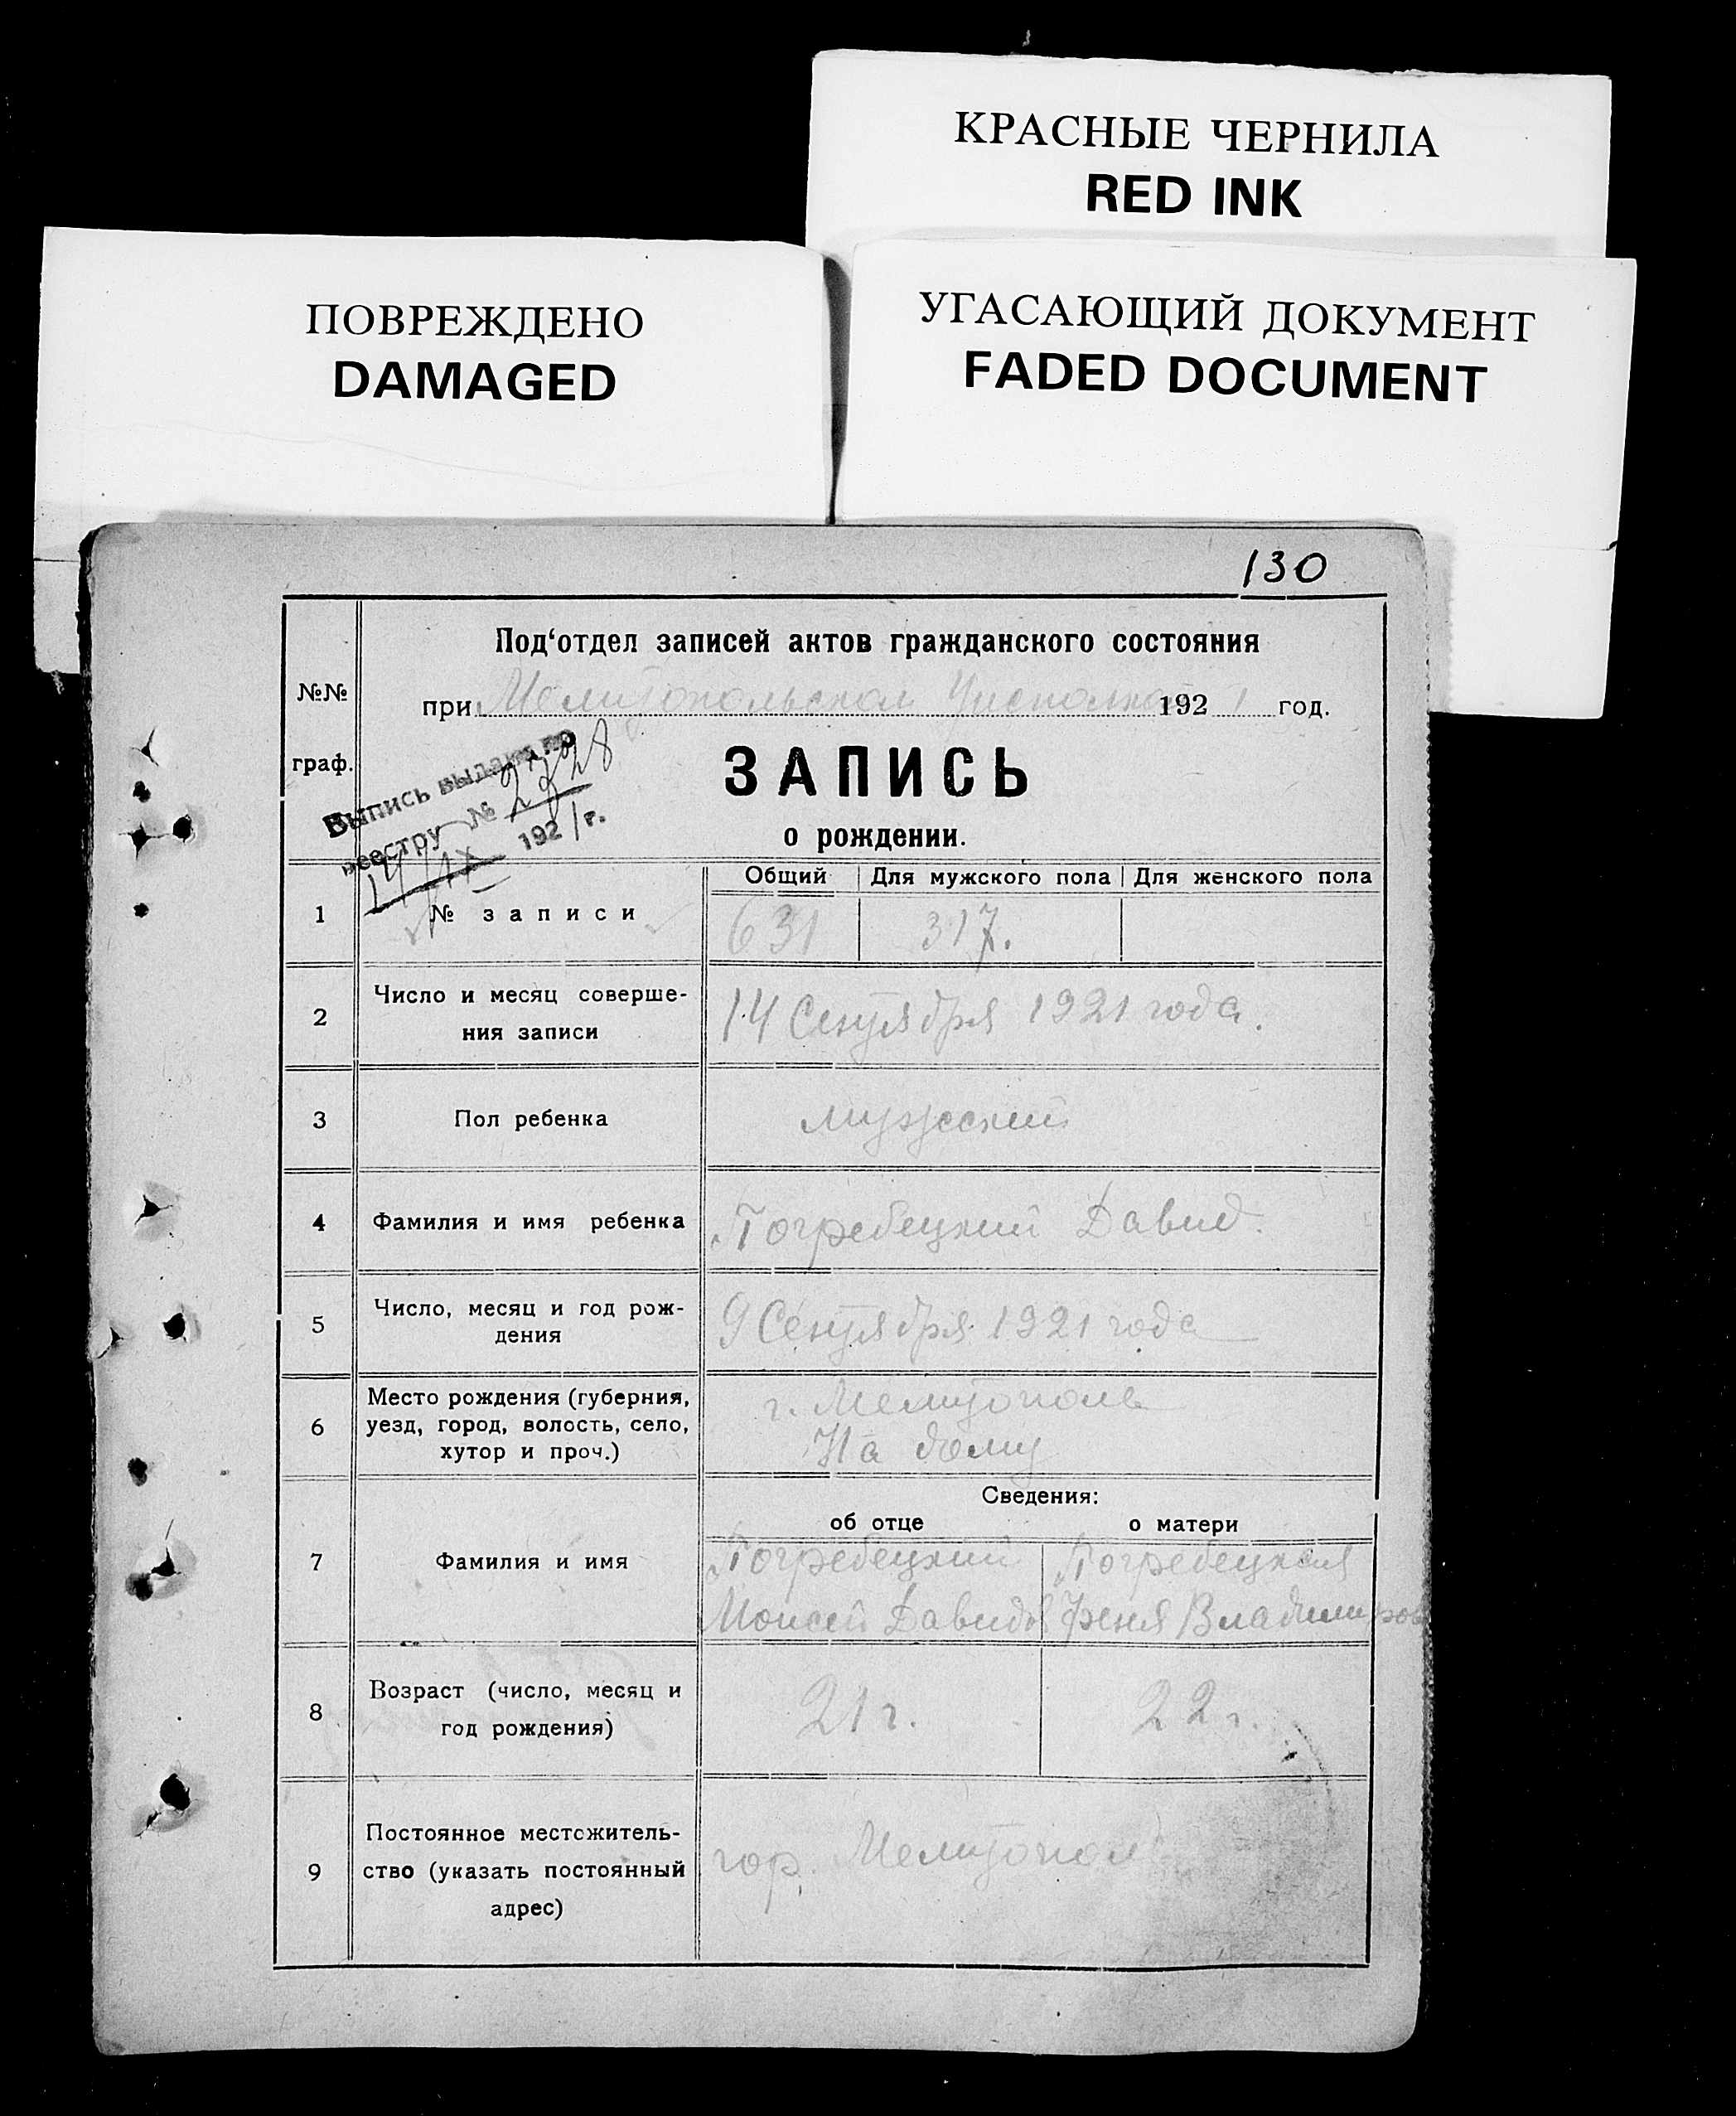 КРАСНЫЕ ЧЕРНИЛА
RED INK
ПОВРЕЖДЕНО
DAMAGED
УГАСАЮЩИЙ ДОКУМЕНТ
FADED DOCUMENT
130
Под‘отдел записей актов гражданского состояния
№№
граф.
при Мелитопольском 1921 год.
Выпись выдана по
реестру № 2328
14/IX 1921 г.
ЗАПИСЬ
о рождении.
Общий Для мужского пола Для женского пола
1 № записи 631 317.
2 Число и месяц соверше-
ния записи
14 Сентября 1921 года.
3 Пол ребенка мужской
4 Фамилия и имя ребенка Погребецкий Давид.
5 Число, месяц и год рож-
дения
9 Сентября 1921 года
6 Место рождения (губерния,
уезд, город, волость, село,
хутор и проч.)
г. Мелитополь
На дому
Сведения:
об отце о матери
7 Фамилия и имя
Погребецкий
Моисей Давидов
Погребецкая
Феня Владимиров
8 Возраст (число, месяц и
год рождения)
21 г. 22 г.
9 Постоянное местожитель-
ство (указать постоянный
адрес)
гор. Мелитополь